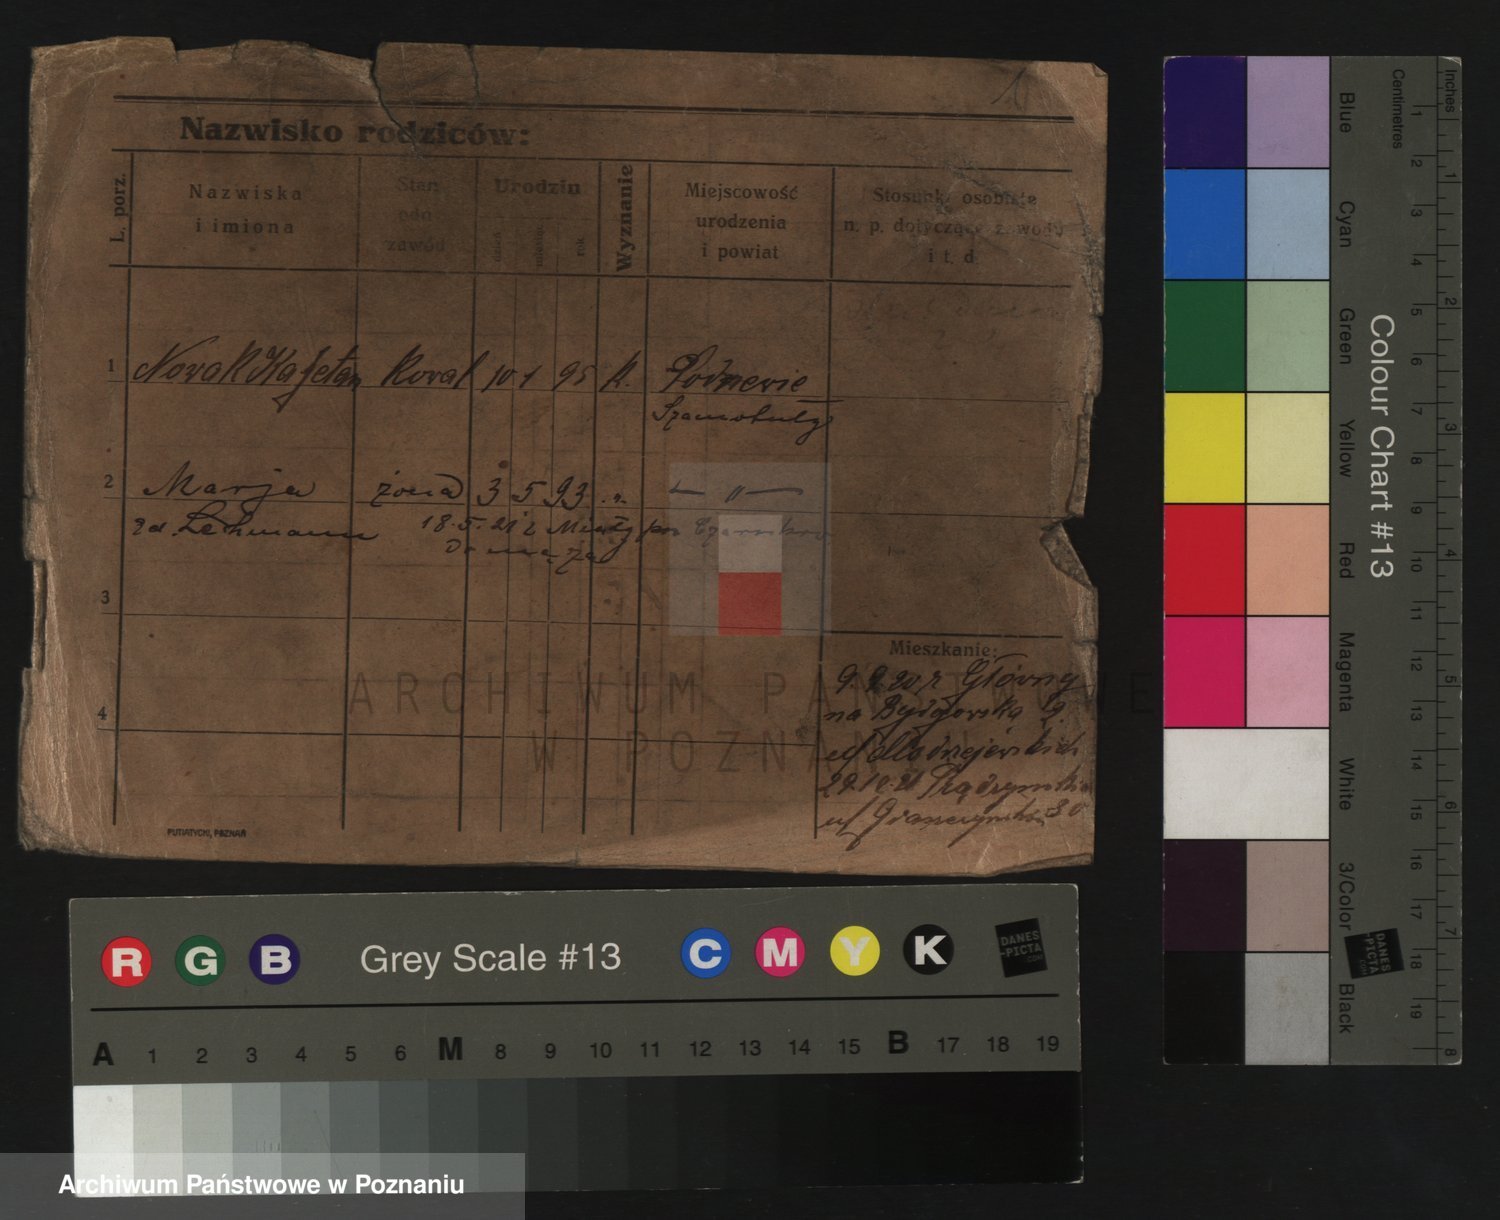 Nazwisko rodziców:
L. porz.
Nazwiska
i imiona
Stan
zawód
Urodzin
dzień
miesiąc
rok
Wyznanie
Miejscowość
urodzenia
i powiat
Stosunki osobiste
n. p. dotyczące zawodu
i t. d.
1
Novak Kajetan Koval 10 1 95 K.
Szamotuły
2
Marja żona 3 5 93 „ — „ —
zd. Lehmann 18.5.21 z
do męża
3
4
Mieszkanie:
9. 9. 20 r Główny
na Bydgorską 9.
u/
29.10.21
u/ 30
PUTIATYCKI, POZNAŃ
ARCHIWUM PAŃSTWOWE
W POZNANIU
Inches
Centimetres
1 2 3 4 5 6 7 8 9 10 11 12 13 14 15 16 17 18 19
1 2 3 4 5 6 7 8
Colour Chart #13
Blue
Cyan
Green
Yellow
Red
Magenta
White
3/Color
Black
DANES
-PICTA
.COM
R G B Grey Scale #13 C M Y K
DANES
-PICTA
.COM
A 1 2 3 4 5 6 M 8 9 10 11 12 13 14 15 B 17 18 19
Archiwum Państwowe w Poznaniu